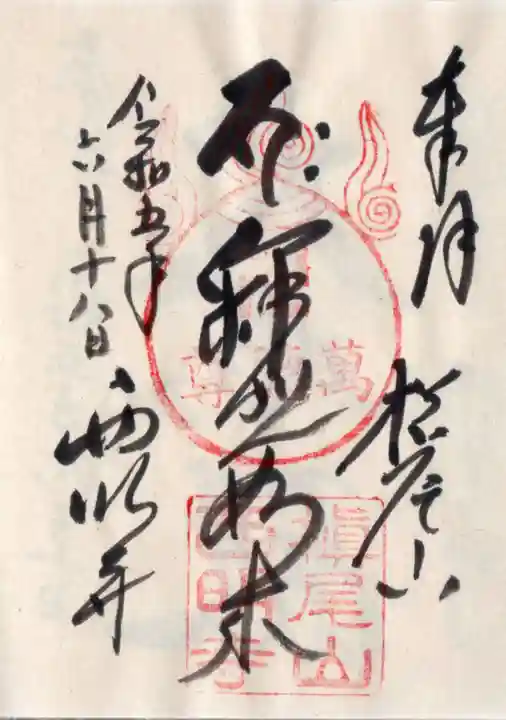 奉拝 槇尾山
釈迦如来
令和五年
六月十八日
西明寺
萬 尊
槇尾山
西明寺